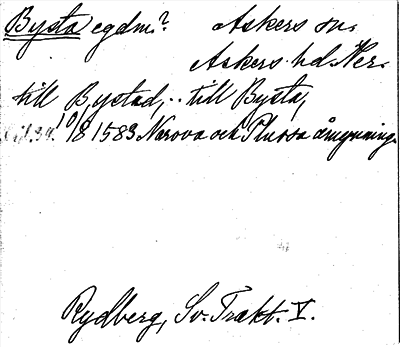 Bysta egdm? Askers sn.
Askers hd Ner.
till Bystad, .. till Bysta,
10/8 1583 Narova och Plussa åmynning
Rydberg, Sv. Trakt. V.